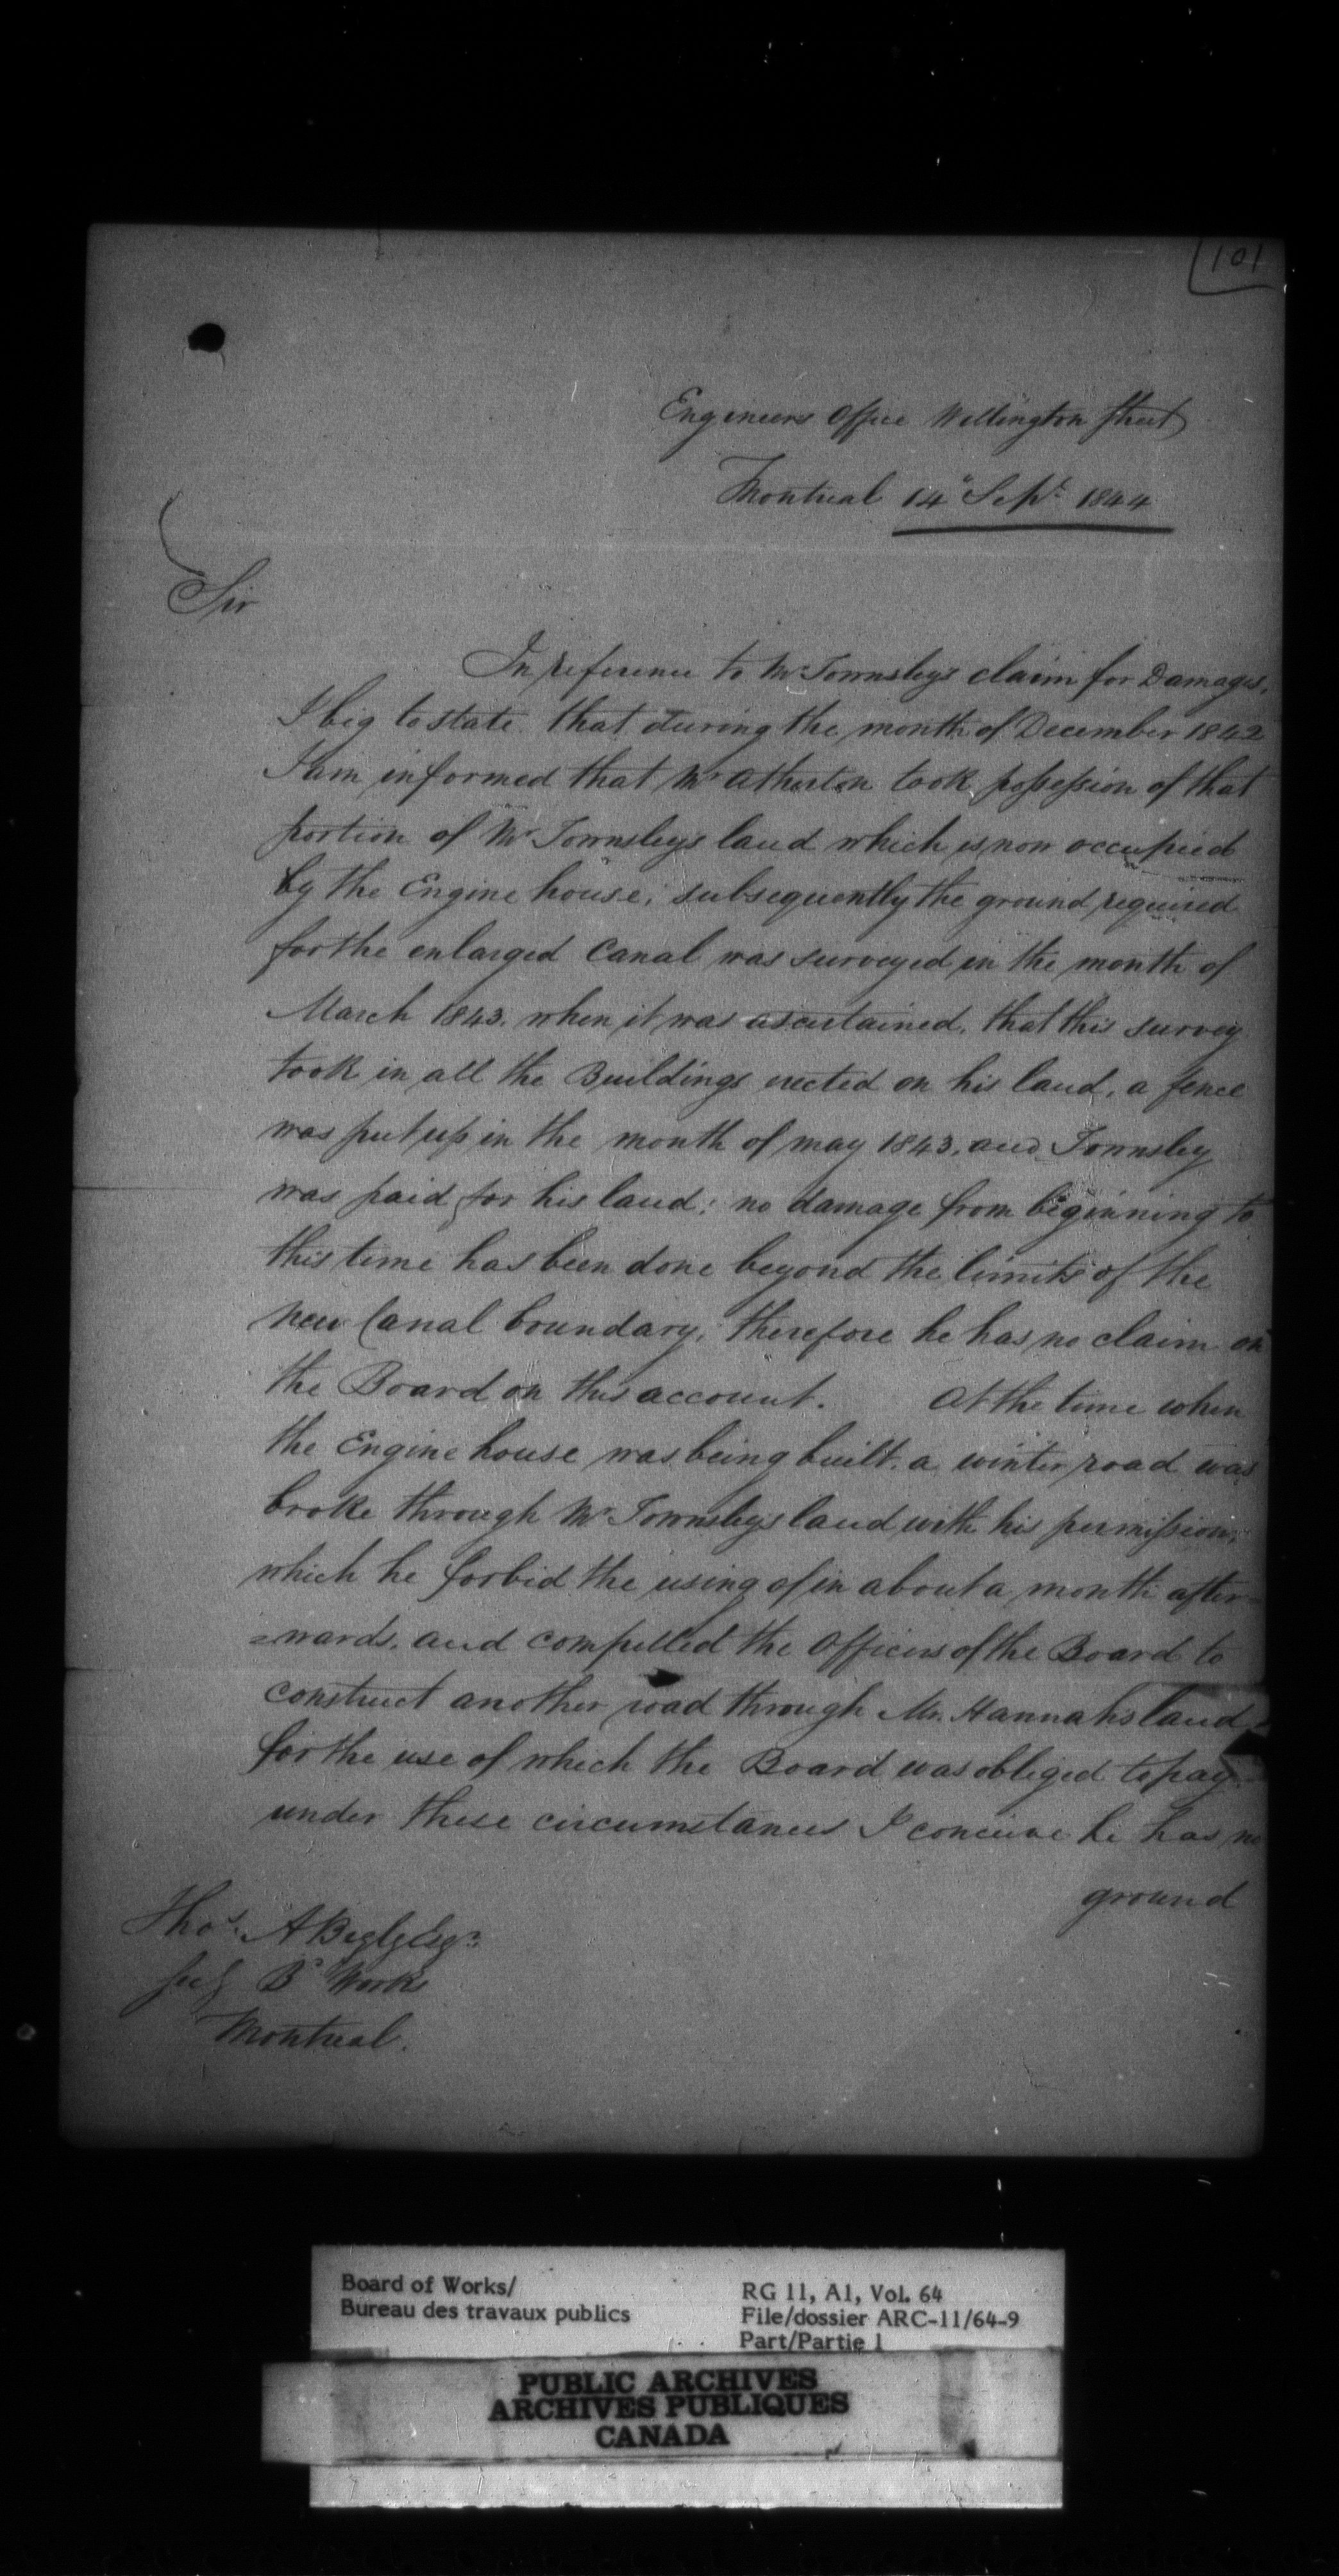 101
Engineers Office Wellington Street
Montreal 14" Sept. 1844
Sir
In reference to Mr Townsleys claim for Damages,
I beg to state that during the month of December 1842
I am informed that Mr Atherton took possession of that
portion of Mr Townsleys land which is now occupied
by the Engine house; subsequently the ground required
for the enlarged Canal was surveyed in the month of
March 1843. when it was ascertained, that this survey
took in all the Buildings erected on his land, a fence
was put up in the month of may 1843, and Townsley
was paid for his land; no damage from beginning to
this time has been done beyond the limits of the
new Canal boundary, therefore he has no claim on
the Board on this account. At the time when
the Engine house was being built, a winter road was
broke through Mr Townsleys land with his permission,
which he forbid the using of in about a month after=
=wards, and compelled the Officers of the Board to
construct another road through Mr. Hannahs land
for the use of which the Board was obliged to pay
under these circumstances I conceive he has no
ground
Thos. A Begly Esqr.
Secy Bd Works
Montreal.
Board of Works/
Bureau des travaux publics
RG 11, A1, Vol. 64
File/dossier ARC-11/64-9
Part/Partie 1
PUBLIC ARCHIVES
ARCHIVES PUBLIQUES
CANADA